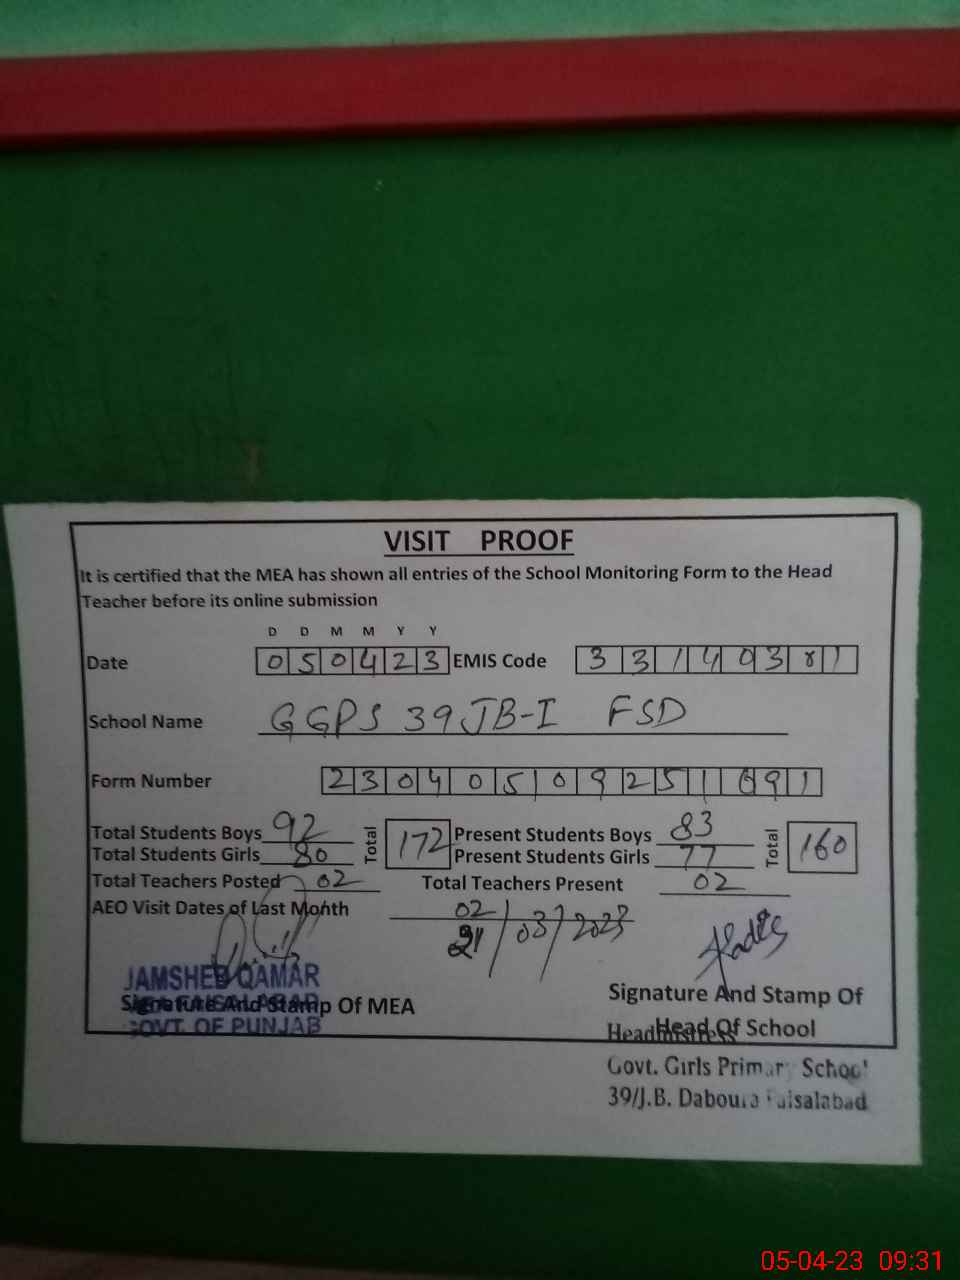 VISIT PROOF
It is certified that the MEA has shown all entries of the School Monitoring Form to the Head
Teacher before its online submission
D D M M Y Y
Date 050423 EMIS Code 33140381
School Name GGPS 39 JB-I FSD
Form Number
Total Students Boys 92 Total 172 Present Students Boys 83 Total 160
Total Students Girls 80 Present Students Girls 77
Total Teachers Posted 02 Total Teachers Present 02
AEO Visit Dates of Last Month 02
/03/2023
JAMSHED QAMAR
Signature And Stamp Of MEA
GOVT. OF PUNJAB
Signature And Stamp Of
Head Of School
Headmistress
Govt. Girls Primary School
39/J.B. Daboura Faisalabad
05-04-23 09:31